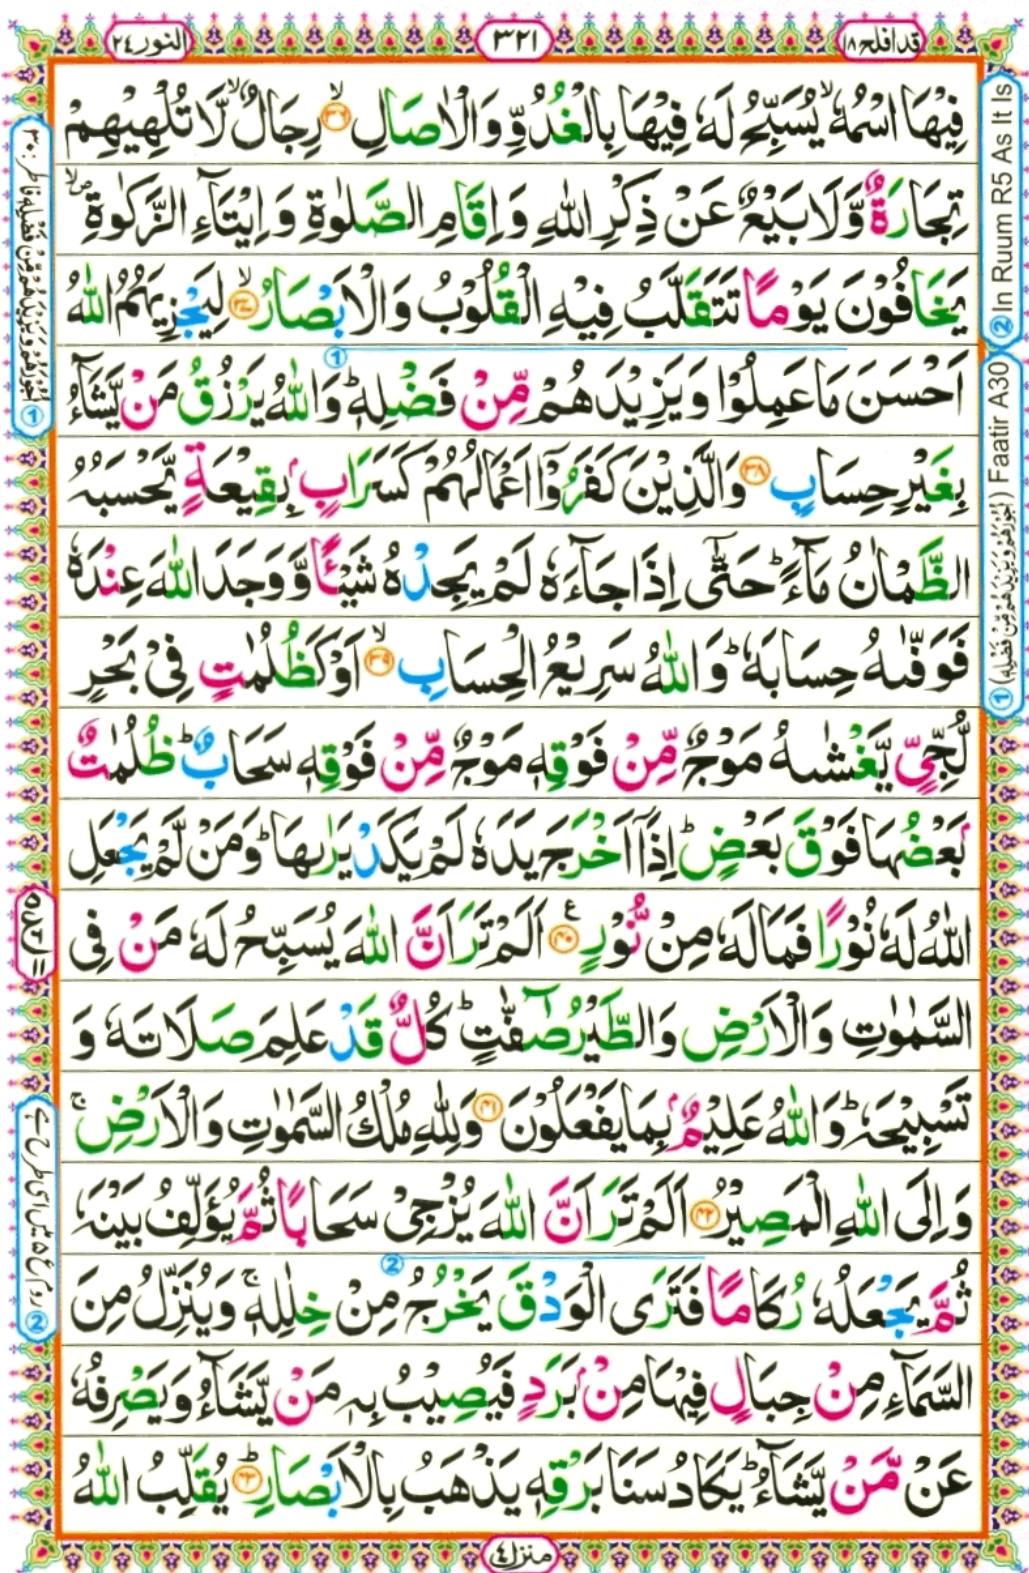 النور ٢٤
٣٢١
قد افلح ١٨
فِيْهَا اسْمُهٗ ۙ يُسَبِّحُ لَهٗ فِيْهَا بِالْغُدُوِّ وَالْاٰصَالِ ﴿٣٦﴾ۙ رِجَالٌ ۙ لَّا تُلْهِيْهِمْ
تِجَارَةٌ وَّلَا بَيْعٌ عَنْ ذِكْرِ اللّٰهِ وَاِقَامِ الصَّلٰوةِ وَاِيْتَآءِ الزَّكٰوةِ ۪ۙ
يَخَافُوْنَ يَوْمًا تَتَقَلَّبُ فِيْهِ الْقُلُوْبُ وَالْاَبْصَارُ ﴿٣٧﴾ۙ لِيَجْزِيَهُمُ اللّٰهُ
اَحْسَنَ مَا عَمِلُوْا وَيَزِيْدَهُمْ مِّنْ فَضْلِهٖ ؕ وَاللّٰهُ يَرْزُقُ مَنْ يَّشَآءُ
بِغَيْرِ حِسَابٍ ﴿٣٨﴾ وَالَّذِيْنَ كَفَرُوْٓا اَعْمَالُهُمْ كَسَرَابٍۭ بِقِيْعَةٍ يَّحْسَبُهُ
الظَّمْاٰنُ مَآءً ؕ حَتّٰٓى اِذَا جَآءَهٗ لَمْ يَجِدْهُ شَيْـًٔا وَّوَجَدَ اللّٰهَ عِنْدَهٗ
فَوَفّٰىهُ حِسَابَهٗ ؕ وَاللّٰهُ سَرِيْعُ الْحِسَابِ ﴿٣٩﴾ۙ اَوْ كَظُلُمٰتٍ فِيْ بَحْرٍ
لُّجِّيٍّ يَّغْشٰىهُ مَوْجٌ مِّنْ فَوْقِهٖ مَوْجٌ مِّنْ فَوْقِهٖ سَحَابٌ ؕ ظُلُمٰتٌۢ
بَعْضُهَا فَوْقَ بَعْضٍ ؕ اِذَآ اَخْرَجَ يَدَهٗ لَمْ يَكَدْ يَرٰىهَا ؕ وَمَنْ لَّمْ يَجْعَلِ
اللّٰهُ لَهٗ نُوْرًا فَمَا لَهٗ مِنْ نُّوْرٍ ﴿٤٠﴾ ع اَلَمْ تَرَ اَنَّ اللّٰهَ يُسَبِّحُ لَهٗ مَنْ فِى
السَّمٰوٰتِ وَالْاَرْضِ وَالطَّيْرُ صٰٓفّٰتٍ ؕ كُلٌّ قَدْ عَلِمَ صَلَاتَهٗ وَ
تَسْبِيْحَهٗ ؕ وَاللّٰهُ عَلِيْمٌۢ بِمَا يَفْعَلُوْنَ ﴿٤١﴾ وَلِلّٰهِ مُلْكُ السَّمٰوٰتِ وَالْاَرْضِ ۚ
وَاِلَى اللّٰهِ الْمَصِيْرُ ﴿٤٢﴾ اَلَمْ تَرَ اَنَّ اللّٰهَ يُزْجِيْ سَحَابًا ثُمَّ يُؤَلِّفُ بَيْنَهٗ
ثُمَّ يَجْعَلُهٗ رُكَامًا فَتَرَى الْوَدْقَ يَخْرُجُ مِنْ خِلٰلِهٖ ۚ وَيُنَزِّلُ مِنَ
السَّمَآءِ مِنْ جِبَالٍ فِيْهَا مِنْۢ بَرَدٍ فَيُصِيْبُ بِهٖ مَنْ يَّشَآءُ وَيَصْرِفُهٗ
عَنْ مَّنْ يَّشَآءُ ؕ يَكَادُ سَنَا بَرْقِهٖ يَذْهَبُ بِالْاَبْصَارِ ﴿٤٣﴾ؕ يُقَلِّبُ اللّٰهُ
منزل ٤
② In Ruum R5 As It Is
① (اُجُوْرَهُمْ وَيَزِيْدَهُمْ مِّنْ فَضْلِهٖ) Faatir A30
② روم ع ٥ میں اسی طرح ہے